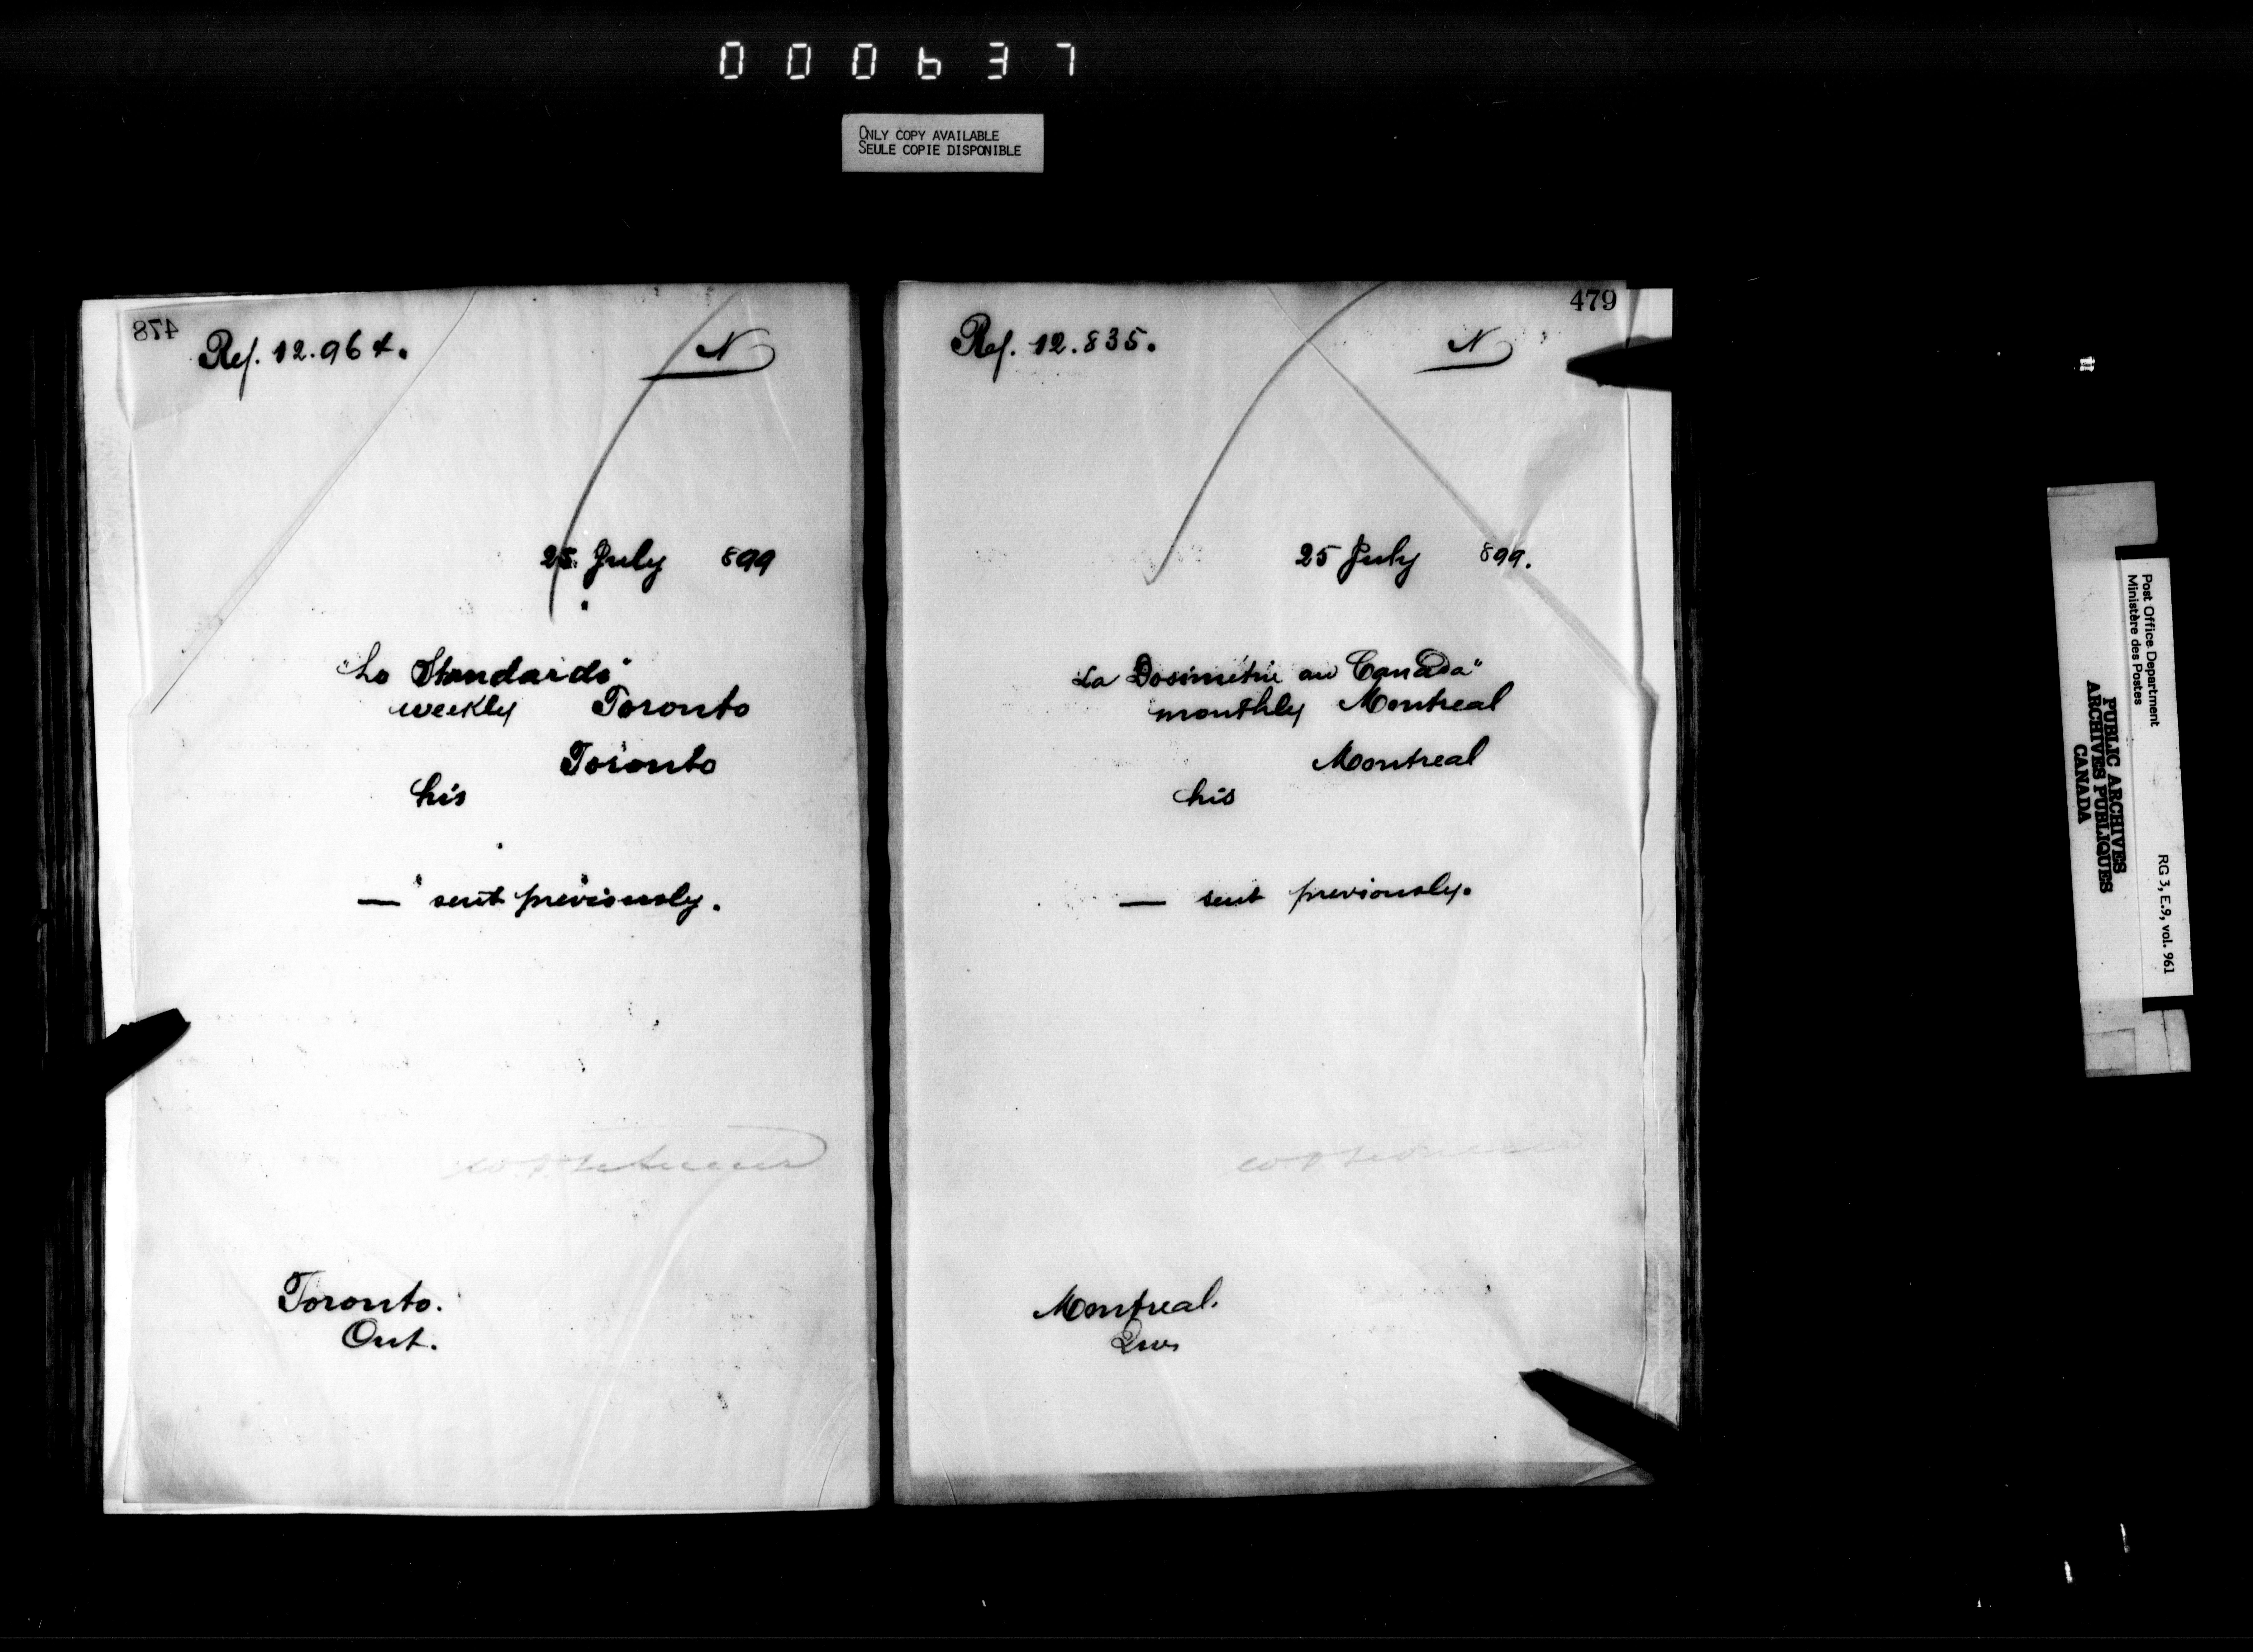 000637
ONLY COPY AVAILABLE
SEULE COPIE DISPONIBLE
478
Ref. 12.964.
N
25 July 899
Standards"
weekly Toronto
Toronto
his
— sent previously.
Toronto.
Ont.
479
Ref. 12.835.
N
25 July 899.
La Dosimétrie au Canada"
monthly Montreal
Montreal
his
— sent previously.
Montreal.
Que
Post Office Department
Ministère des Postes
RG 3, E.9, vol. 961
PUBLIC ARCHIVES
ARCHIVES PUBLIQUES
CANADA